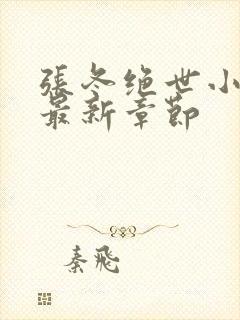 張冬绝世小
最新章節
秦飛